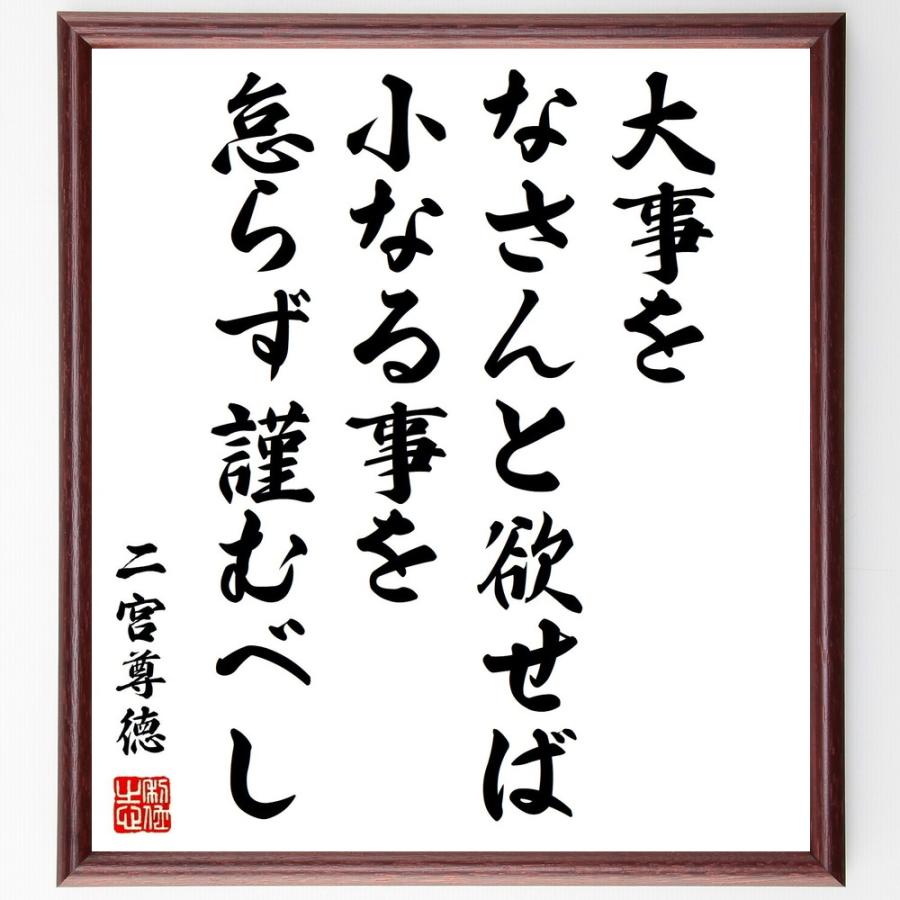 大事を
なさんと欲せば
小なる事を
怠らず謹むべし
二宮尊徳